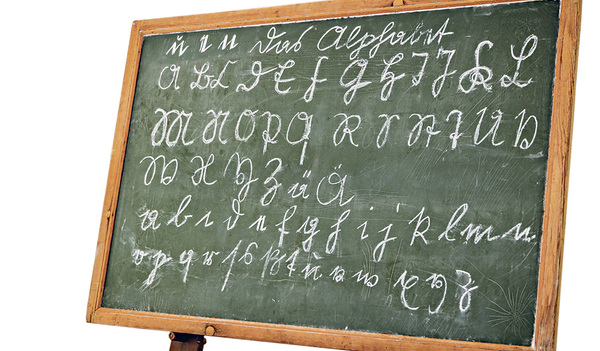 Das Alphabet
A B C D E F G H I J K L
M N O P Q R S St T U V
W X Y Z ü Ä
a b c d e f g h i j k l m n
o p q r ſ s ß t u v w x y z